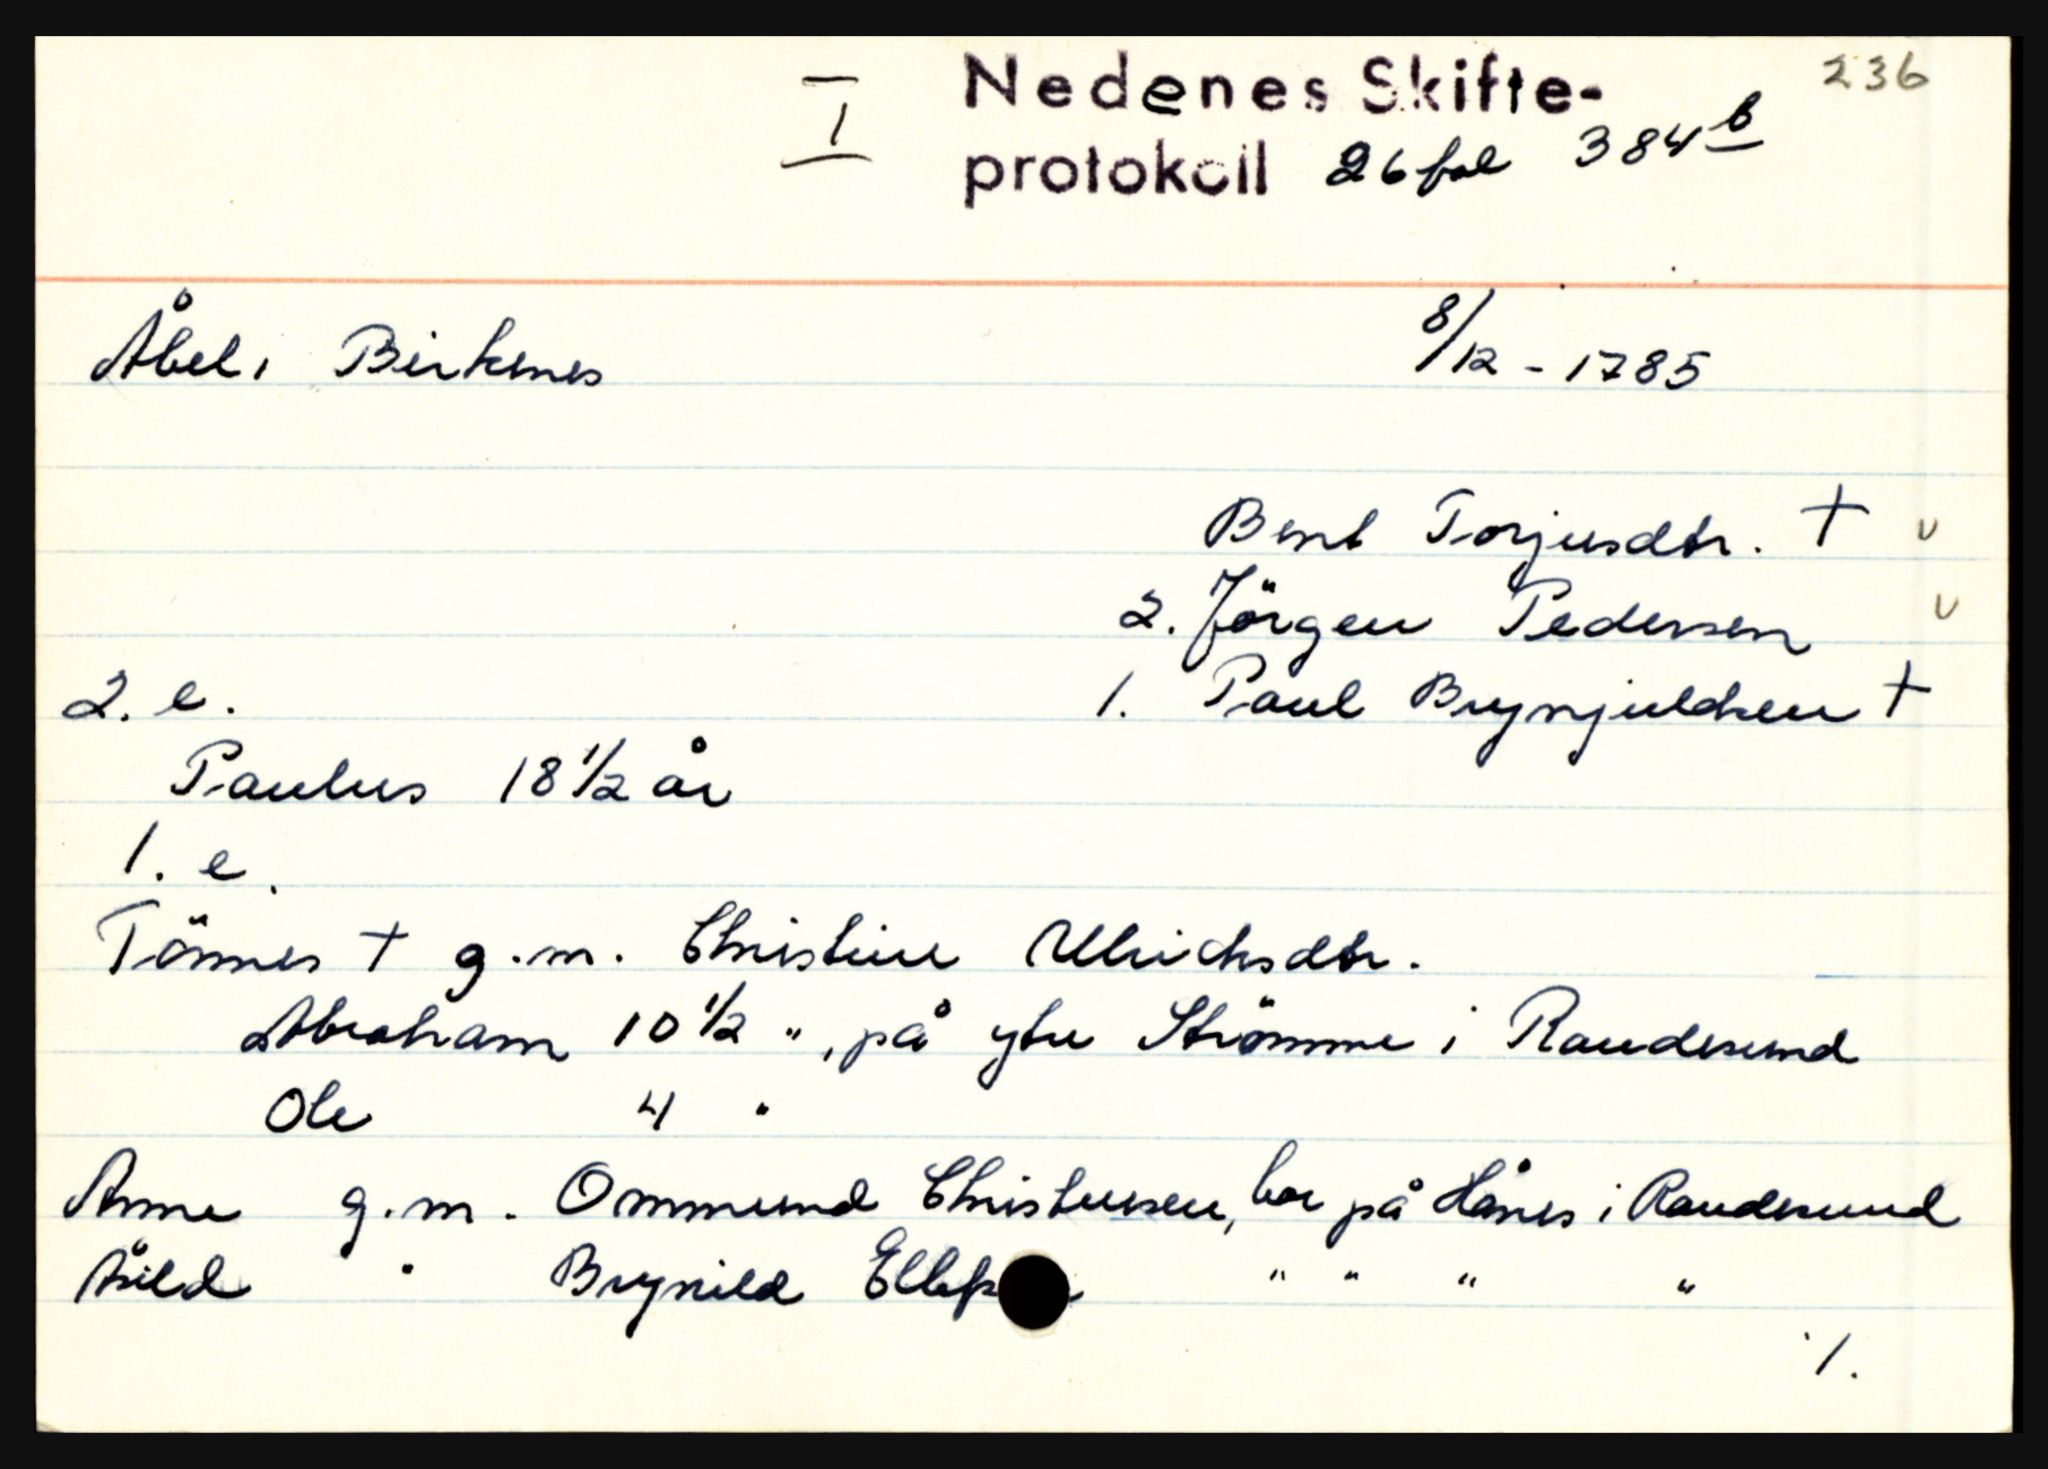 I Nedenes Skifte- 236
protokoll 26 fol 384 b
Åbel i Birkenes 8/12 - 1785
Bent Torjusdtr. †
2. Jörgen Pedersen
2. e. 1. Paul Brynjuldsen †
Paulus 18 1/2 år
1. e.
Tönnes † g.m. Christine Ulrichsdtr.
Abraham 10 1/2 ", på ytre Strömme i Randesund
Ole 4 "
Anne g.m. Ommund Christensen, bor på Hånes i Randesund
Åsild " Brynild Ellefs " " " "
1.